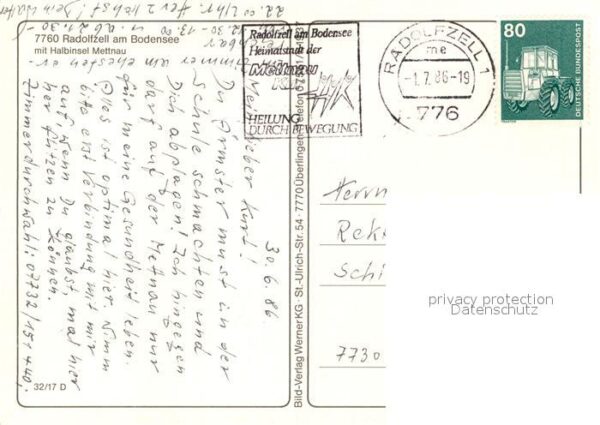 7760 Radolfzell am Bodensee
mit Halbinsel Mettnau
30.6.86.
Mein lieber Kurt!
Du Ärmster mußt in der
Schule schmachten und
Dich abplagen! Ich hingegen
darf auf der Mettnau nur
für meine Gesundheit leben.
Alles ist optimal hier. Nimm
bitte erst Verbindung mit mir
auf, wenn Du glaubst, mal hier
her flitzen zu können.
Zimmerdurchwahl: 07732/151-440,
Zimmer am ehesten er-
12.30 - 13.00 u. ab 21.30 -
22.00 Uhr. Herzlichst! Dein Walter
32/17 D
Bild-Verlag Werner KG · St.-Ulrich-Str. 54 · 7770 Überlingen · Telefon
Radolfzell am Bodensee
Heimatstadt der
Mettnau
Kur
HEILUNG
DURCH BEWEGUNG
RADOLFZELL 1
me
-1.7.86-19
776
80
DEUTSCHE BUNDESPOST
TRAKTOR
Herrn
Rekt
Schi
7730
privacy protection
Datenschutz